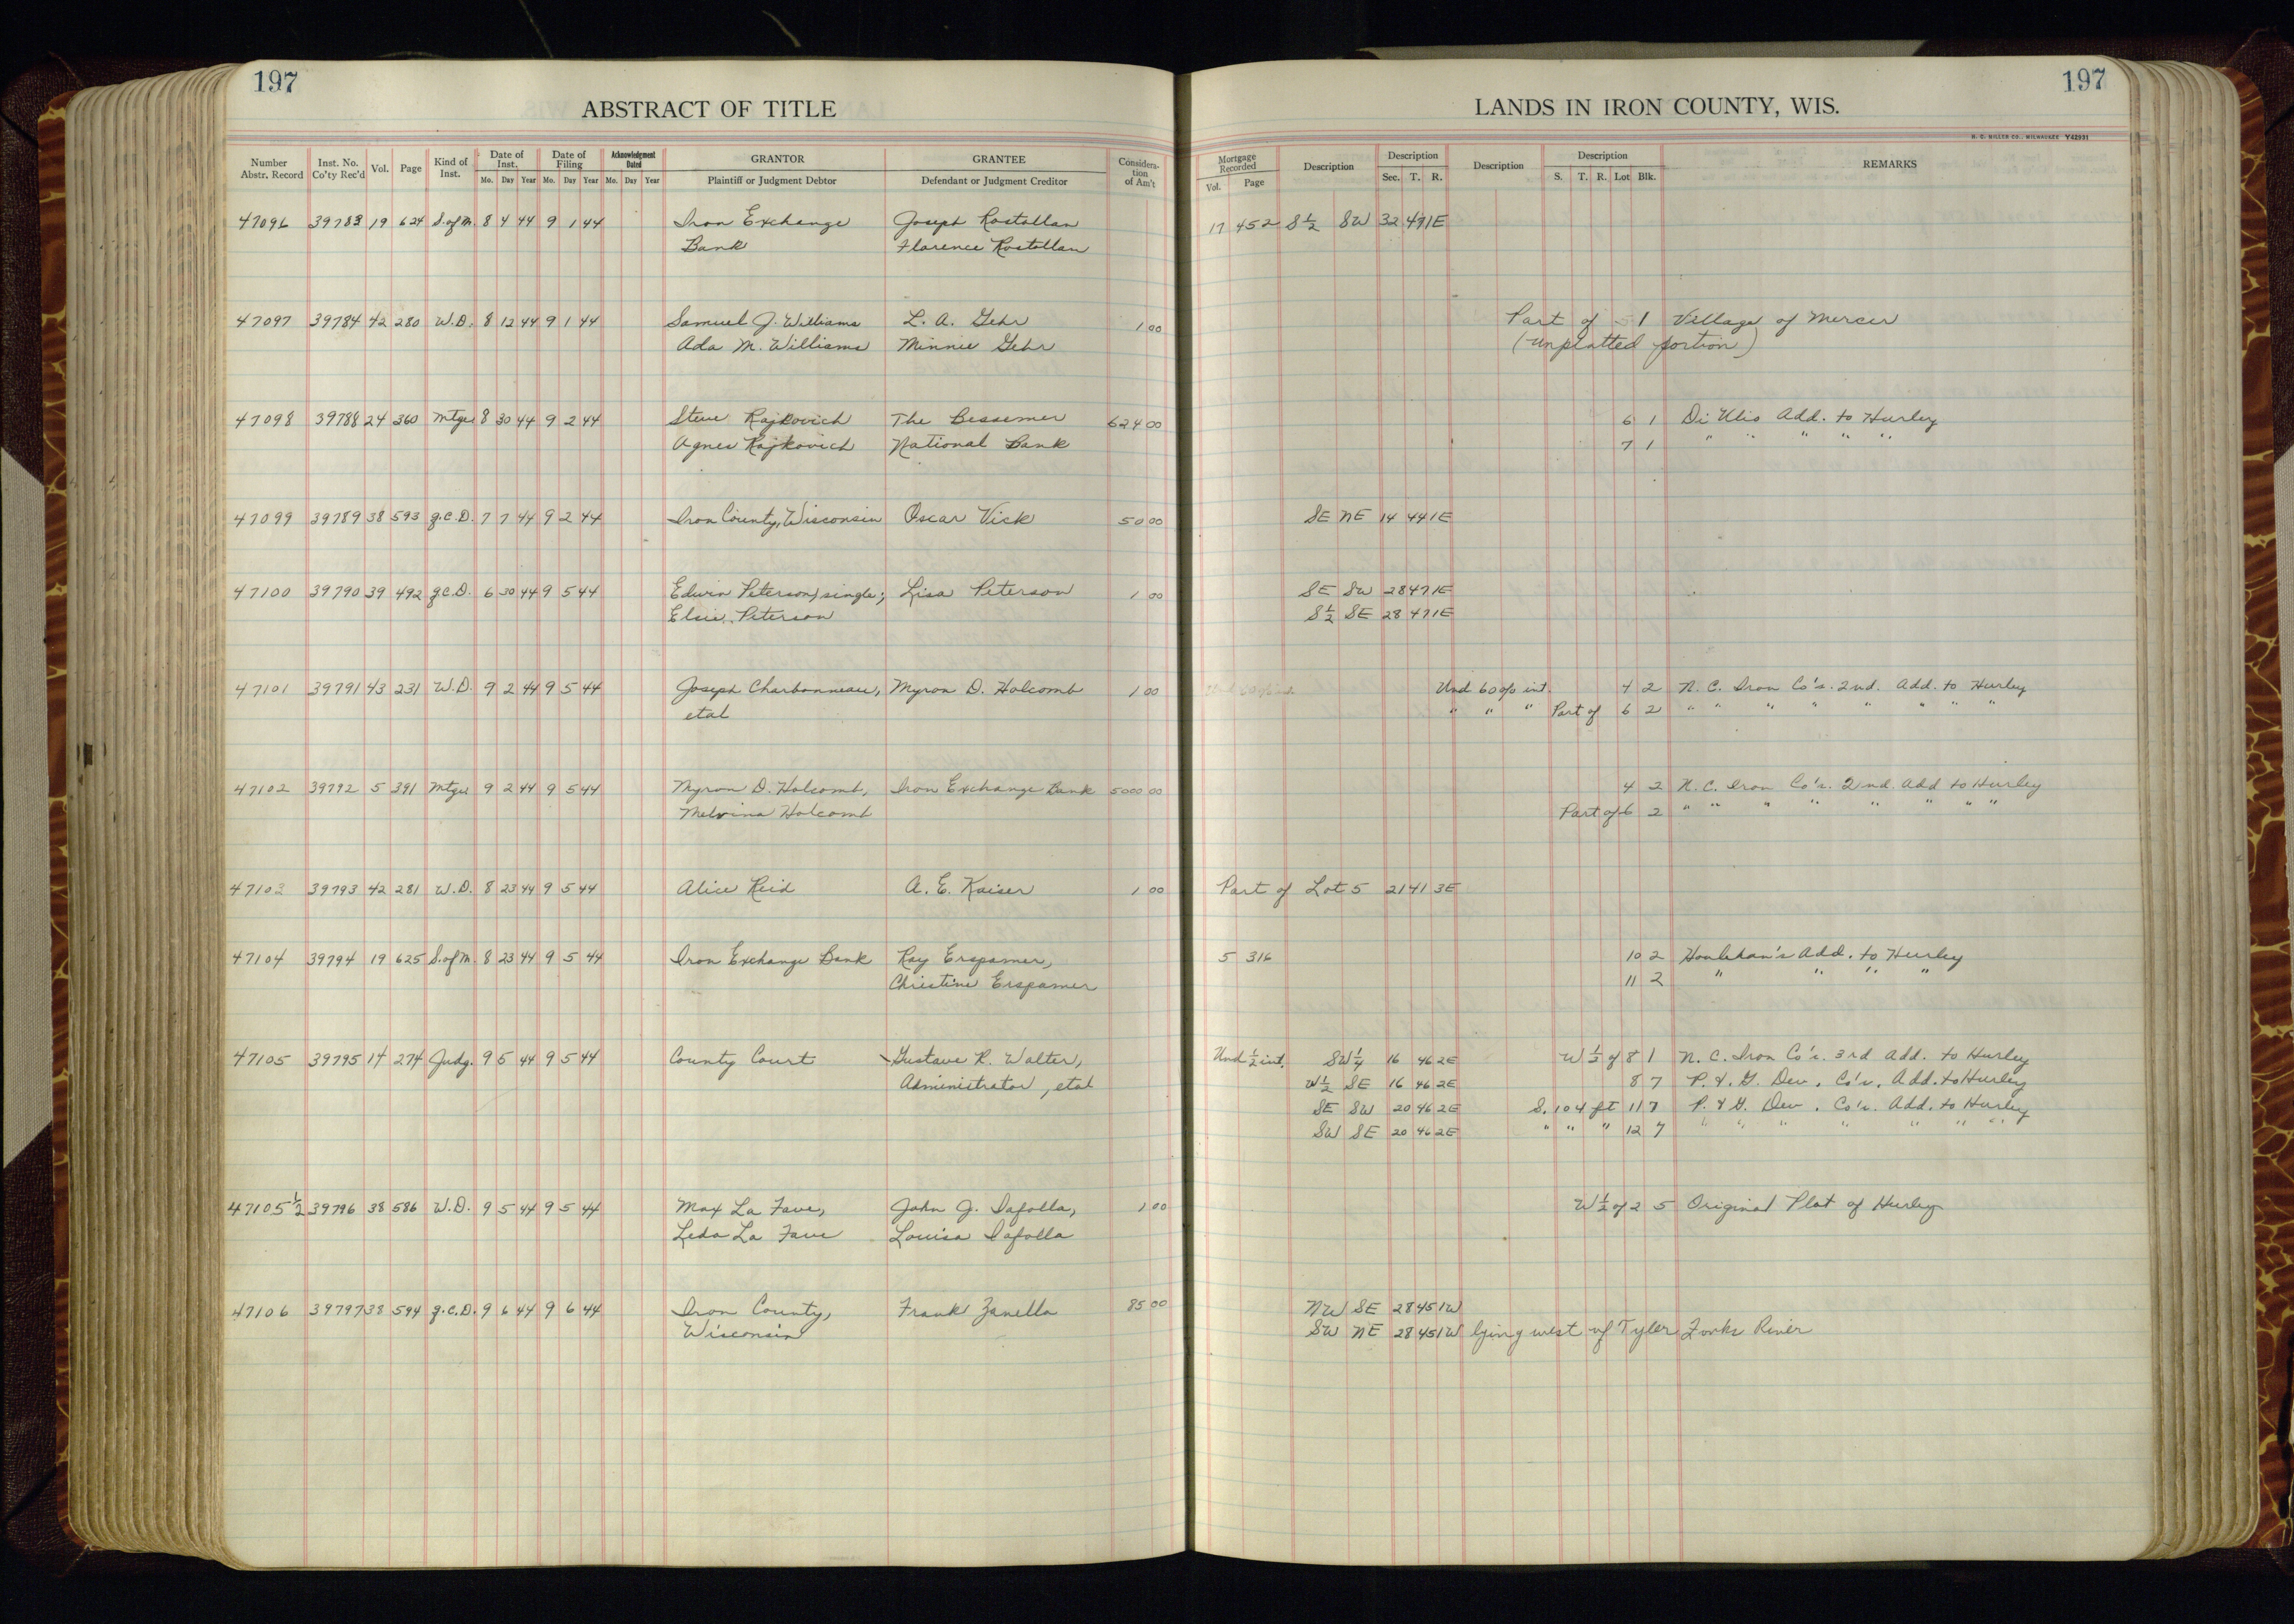 197
ABSTRACT OF TITLE
Number Abstr. Record | Inst. No. Co'ty Rec'd | Vol. | Page | Kind of Inst. | Date of Inst. Mo. Day Year | Date of Filing Mo. Day Year | Acknowledgment Dated Mo. Day Year | GRANTOR Plaintiff or Judgment Debtor | GRANTEE Defendant or Judgment Creditor | Consideration of Am't
LANDS IN IRON COUNTY, WIS.
197
H. C. MILLER CO., MILWAUKEE Y42931
Mortgage Recorded Vol. Page | Description | Description Sec. T. R. | Description | Description S. T. R. Lot Blk. | REMARKS
47096 39783 19 624 S.ofM. 8 4 44 9 1 44 Iron Exchange Joseph Rostollan 17 452 S½ SW 32 47 1E
Bank Florence Rostollan
47097 39784 42 280 W.D. 8 12 44 9 1 44 Samuel J. Williams L. A. Gehr 1 00 Part of - 1 Village of Mercer
Ada M. Williams Minnie Gehr (unplatted portion)
47098 39788 24 360 Mtge 8 30 44 9 2 44 Steve Rajkovich The Bessemer 624 00 6 1 Di Ulio Add. to Hurley
Agnes Rajkovich National Bank 7 1 " " " " "
47099 39789 38 593 q.c.D. 7 7 44 9 2 44 Iron County, Wisconsin Oscar Vick 50 00 SE NE 14 44 1E
47100 39790 39 492 q.c.D. 6 30 44 9 5 44 Edwin Peterson, single; Lisa Peterson 1 00 SE SW 28 47 1E
Elsie Peterson S½ SE 28 47 1E
47101 39791 43 231 W.D. 9 2 44 9 5 44 Joseph Charbonneau, Myron D. Holcomb 1 00 Und 60% int. 4 2 N. C. Iron Co's. 2nd. Add. to Hurley
etal " " " Part of 6 2 " " " " " " " "
47102 39792 5 391 Mtge 9 2 44 9 5 44 Myron D. Holcomb, Iron Exchange Bank 5000 00 4 2 N. C. Iron Co's. 2nd. Add to Hurley
Melvina Holcomb Part of 6 2 " " " " " " " "
47103 39793 42 281 W.D. 8 23 44 9 5 44 Alice Reid A. E. Kaiser 1 00 Part of Lot 5 21 41 3E
47104 39794 19 625 S.ofM. 8 23 44 9 5 44 Iron Exchange Bank Ray Erspamer, 5 316 10 2 Houlehan's Add. to Hurley
Christine Erspamer 11 2 " " " "
47105 39795 14 274 Judg. 9 5 44 9 5 44 County Court Gustave R. Walter, Und ½ int. SW¼ 16 46 2E W½ of 8 1 N. C. Iron Co's. 3rd Add. to Hurley
Administrator, etal W½ SE 16 46 2E 8 7 P. & G. Dev. Co's. Add. to Hurley
SE SW 20 46 2E S. 104 ft 11 7 P. & G. Dev. Co's. Add. to Hurley
SW SE 20 46 2E " " " 12 7 " " " " " "
47105½ 39796 38 586 W.D. 9 5 44 9 5 44 Max La Fave, John J. Iafolla, 1 00 W½ of 2 5 Original Plat of Hurley
Leda La Fave Louisa Iafolla
47106 39797 38 594 q.c.D. 9 6 44 9 6 44 Iron County, Frank Zanella 85 00 NW SE 28 45 1W
Wisconsin SW NE 28 45 1W lying west of Tyler Forks River